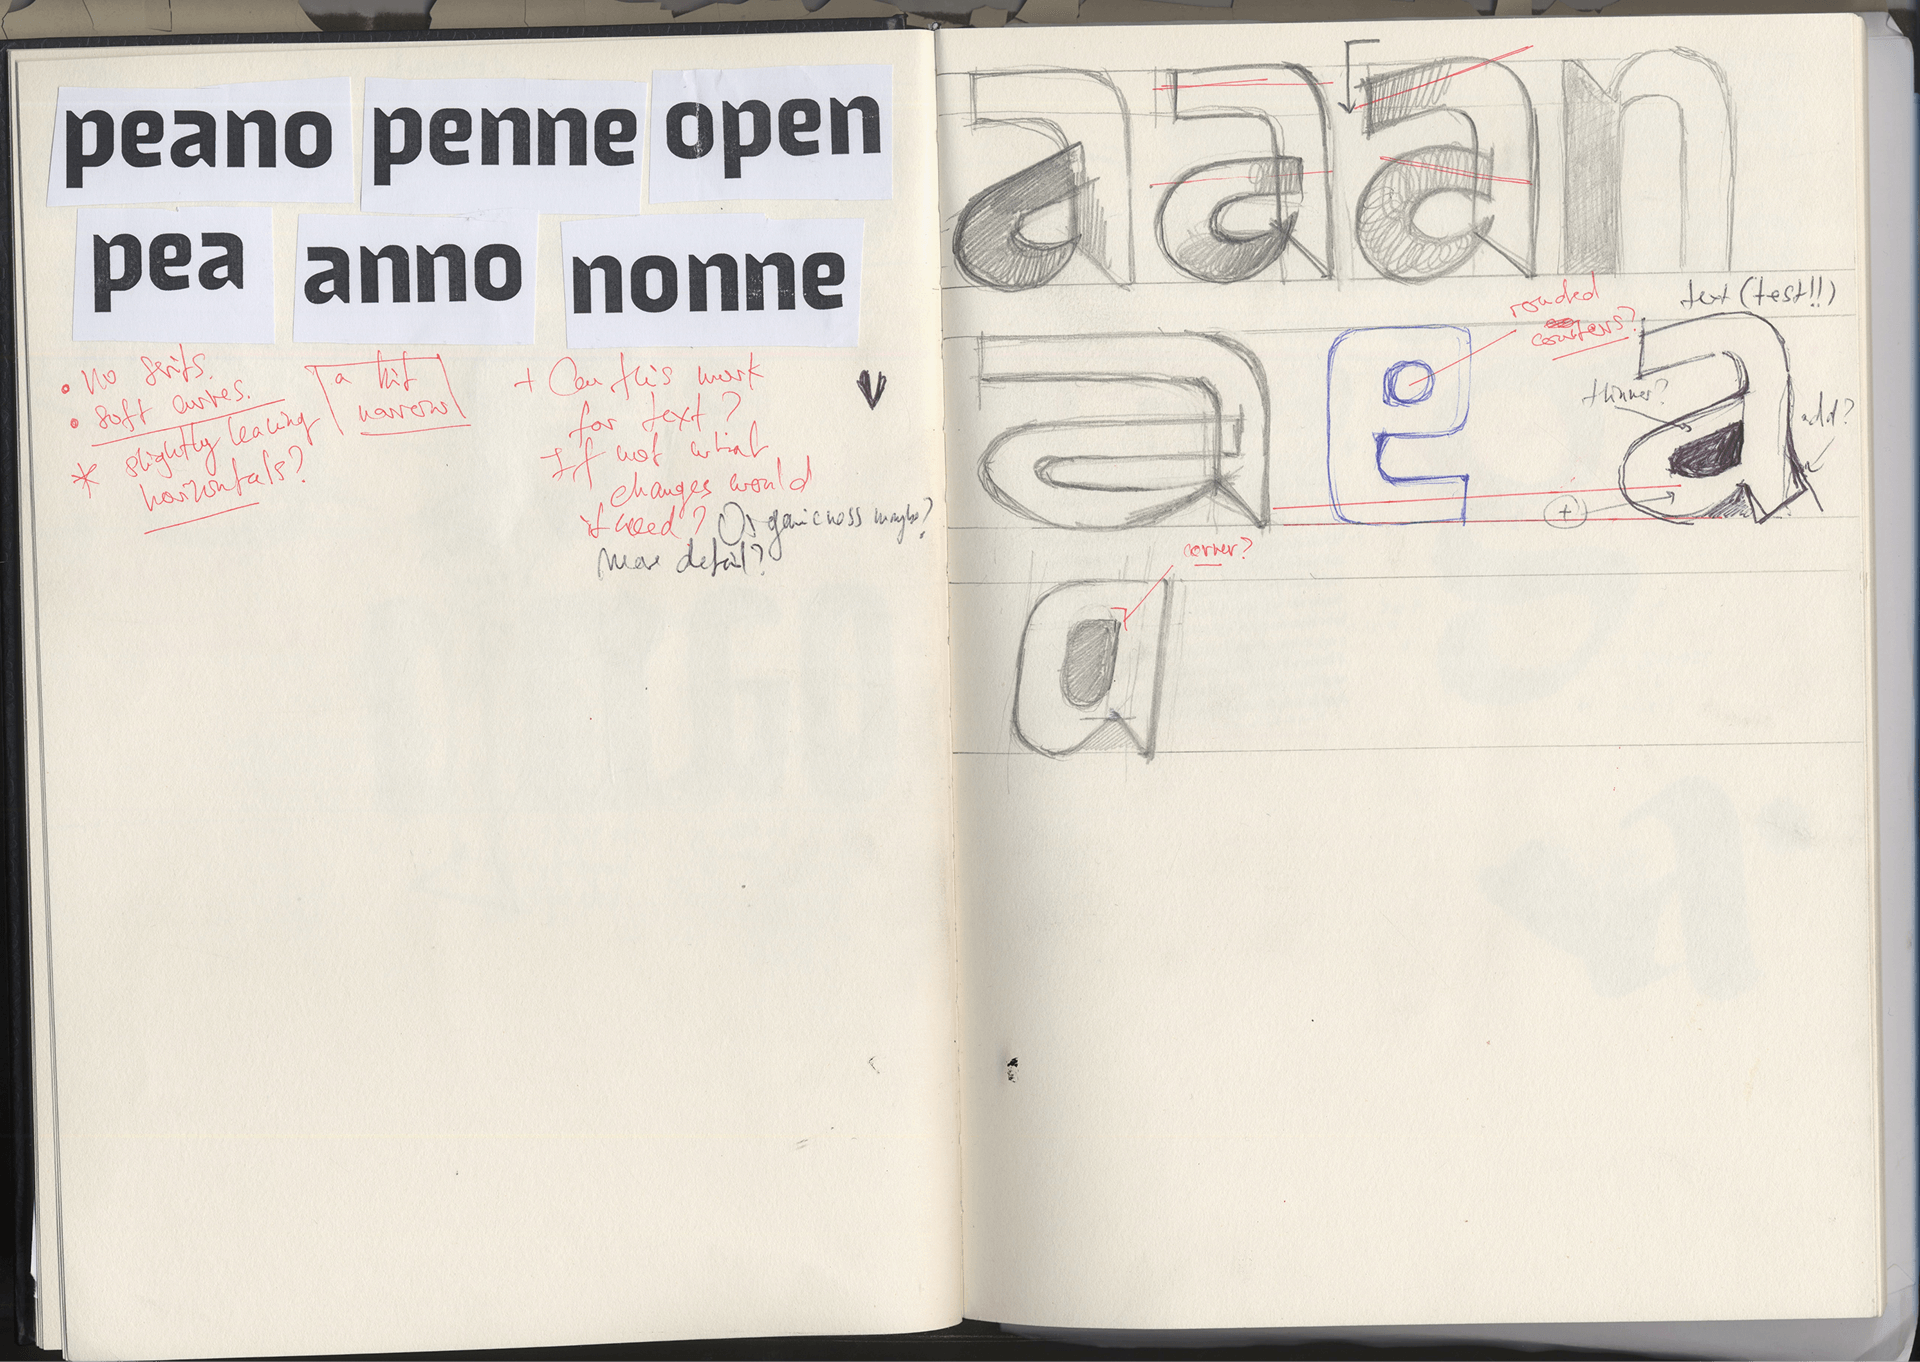 peano penne open
pea anno nonne
• No serifs.
• soft curves.
* slightly leaning
horizontals?
a bit
narrow
+ Can this work
for text?
If not what
changes would
it need? Organicness maybe?
More detail?
a a a n
text (test!!)
rounded
counters?
a e a
thinner?
add?
+
corner?
a